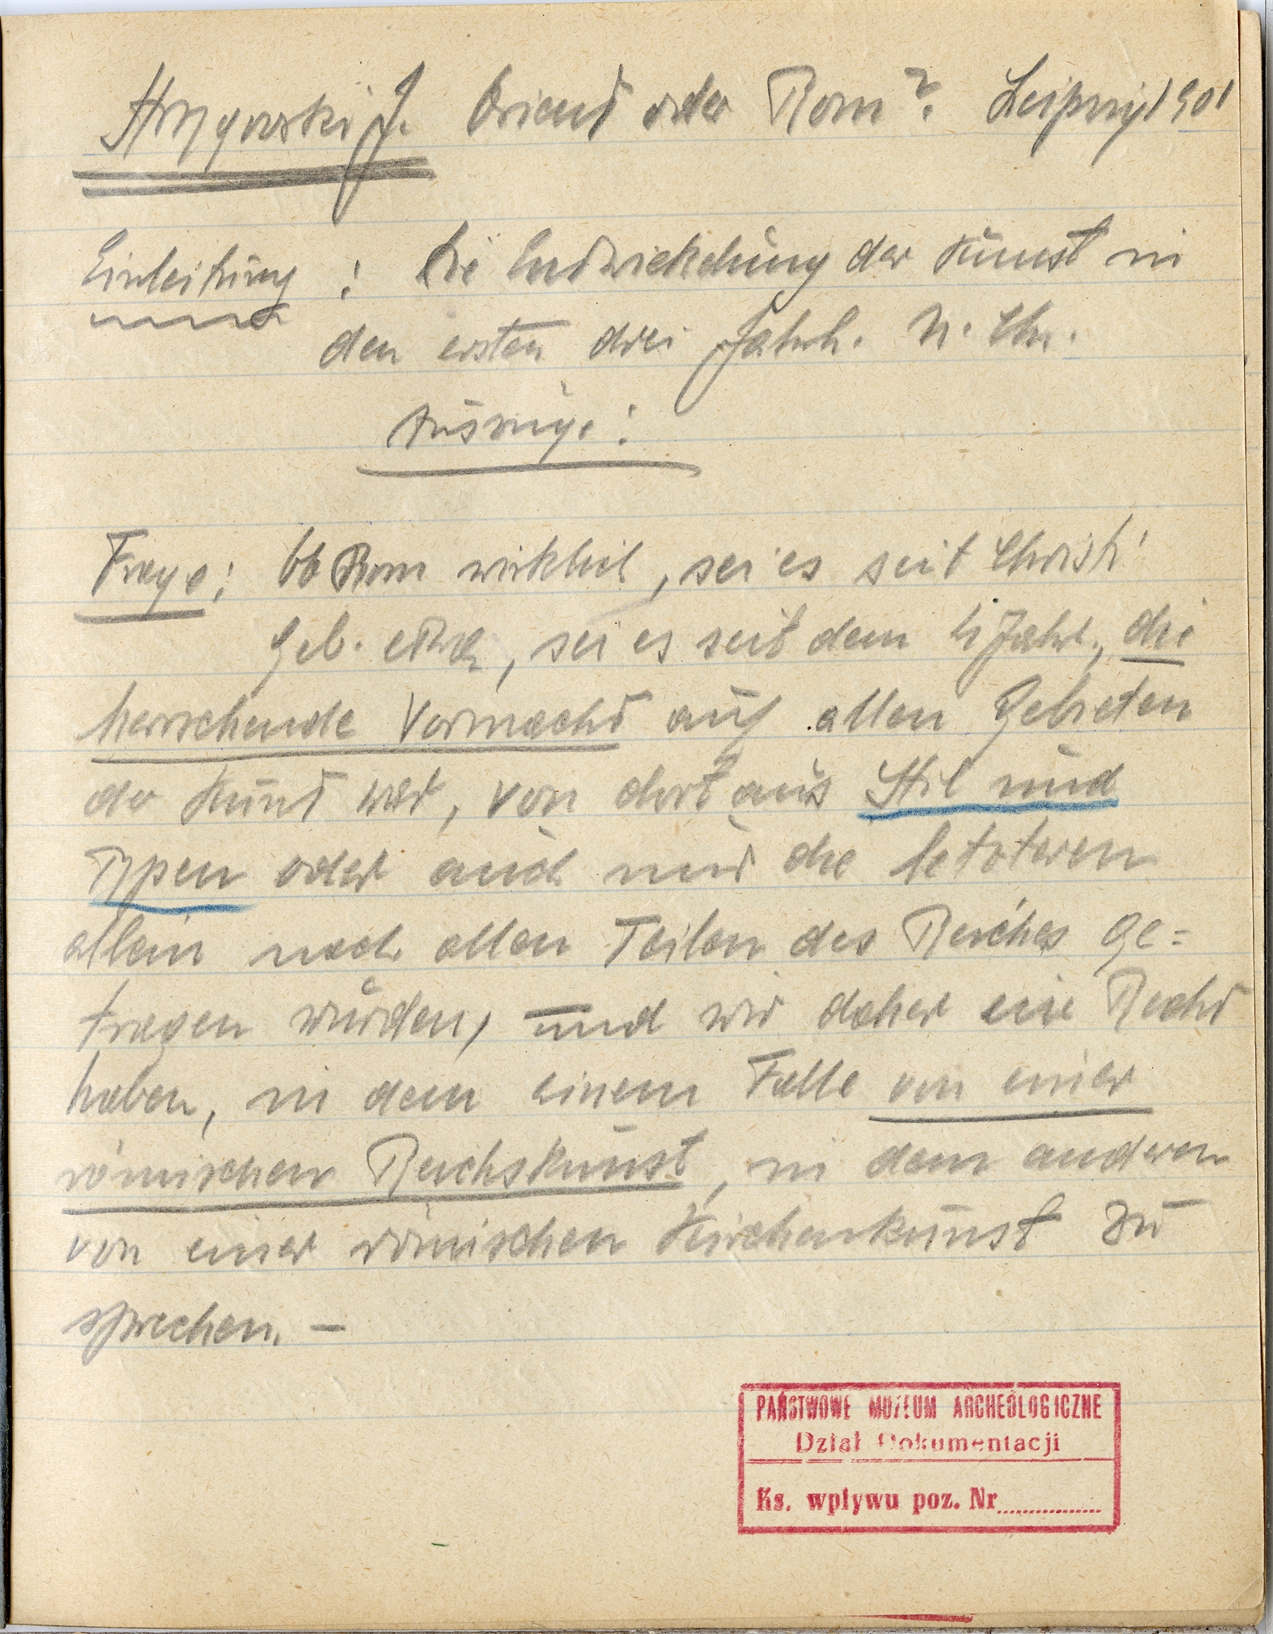 Strzygowski J. Orient oder Rom? Leipzig 1901
Einleitung : Die Entwickelung der Kunst in
den ersten drei Jahrh. n. Chr.
Auszüge :
Frage : Ob Rom wirklich, sei es seit Christi
Geb. etwa, sei es seit dem 4 Jahrh., die
herrschende Vormacht auf allen Gebieten
der Kunst war, von dort aus Stil und
Typen oder auch nur die letzteren
allein nach allen Teilen des Reiches ge=
tragen wurden, und wir daher ein Recht
haben, in dem einem Falle von einer
römischen Reichskunst, in dem anderen
von einer römischen Kirchenkunst zu
sprechen. —
PAŃSTWOWE MUZEUM ARCHEOLOGICZNE
Dział Dokumentacji
Ks. wpływu poz. Nr